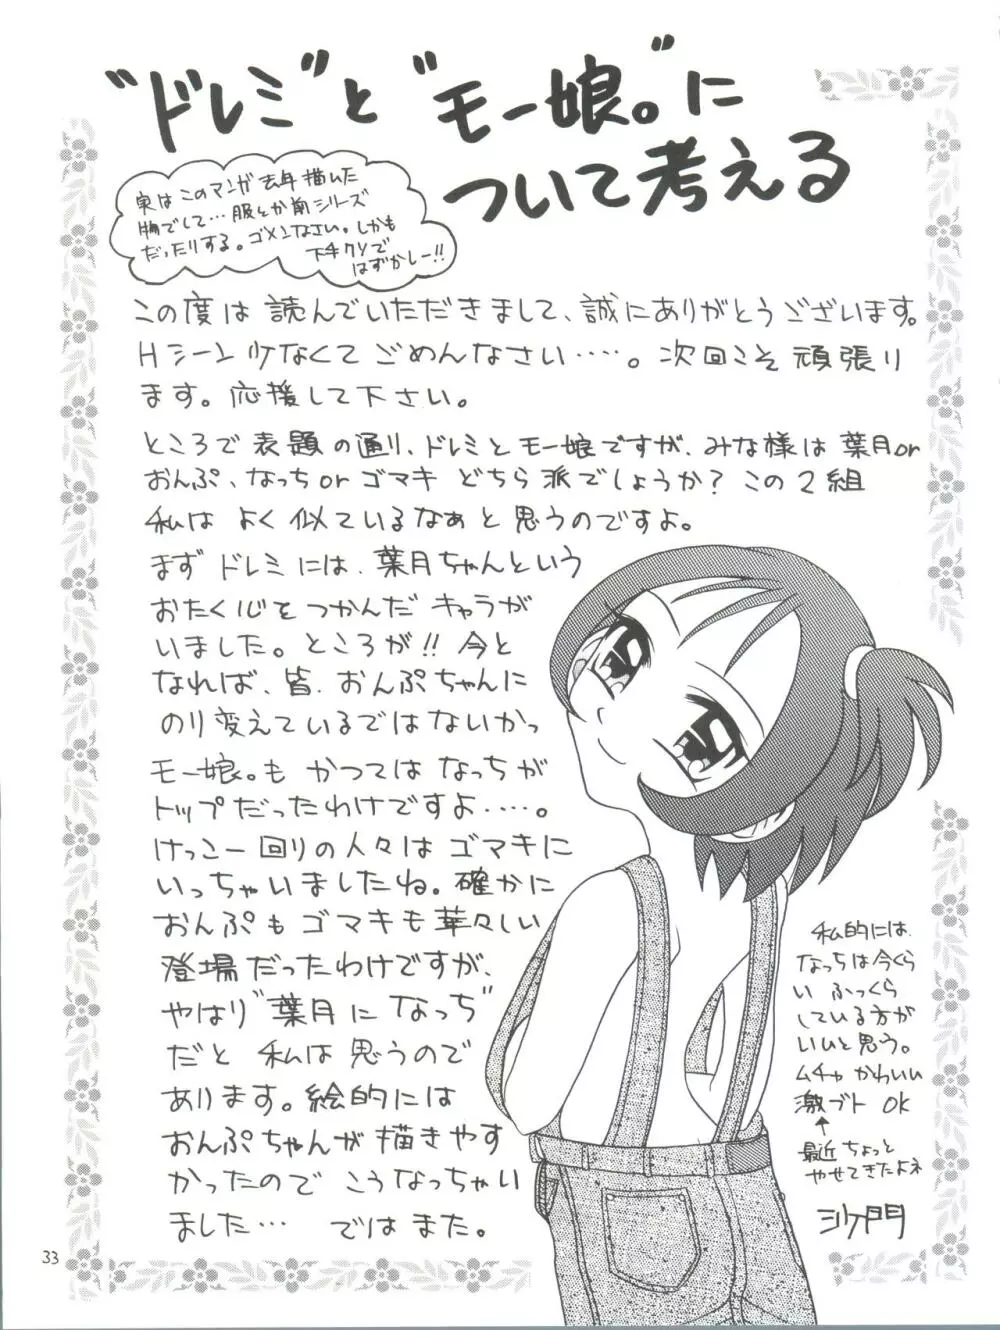 “ドレミ”と“モー娘。”に
ついて考える
実はこのマンガ去年描いた
物でして…服とか前シリーズ
だったりする。ゴメンなさい。しかも
下手クソで
はずかしー!!
この度は読んでいただきまして、誠にありがとうございます。
Hシーン少なくてごめんなさい……。次回こそ頑張り
ます。応援して下さい。
ところで表題の通り、ドレミとモー娘ですが、みな様は葉月or
おんぷ、なっちorゴマキどちら派でしょうか?この2組
私はよく似ているなぁと思うのですよ。
まずドレミには、葉月ちゃんという
おたく心をつかんだキャラが
いました。ところが!!今と
なれば、皆、おんぷちゃんに
のり変えているではないかっ
モー娘。もかつてはなっちが
トップだったわけですよ……。
けっこー回りの人々はゴマキに
いっちゃいましたね。確かに
おんぷもゴマキも華々しい
登場だったわけですが、
やはり“葉月になっち”
だと私は思うので
あります。絵的には
おんぷちゃんが描きやす
かったのでこうなっちゃい
ました…ではまた。
私的には、
なっちは今くら
いふっくら
している方が
いいと思う。
ムチャかわいい
激ブトOK
↑
最近ちょっと
やせてきたよネ
沙門
33